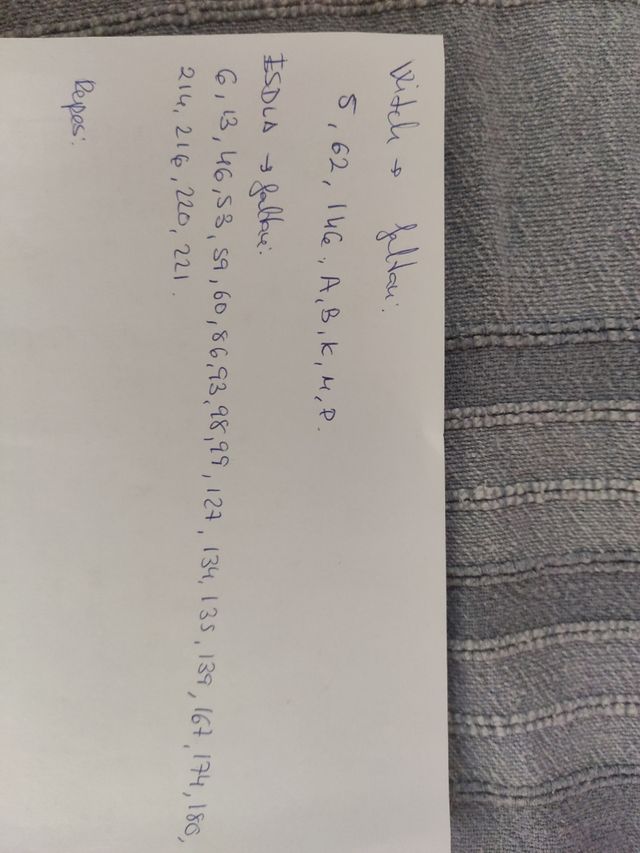 Witch → faltan:
5, 62, 146, A, B, K, M, P.
ESDLA → faltan:
6, 13, 46, 53, 59, 60, 86, 93, 98, 99, 127, 134, 135, 139, 167, 174, 180,
214, 216, 220, 221.
Repes: